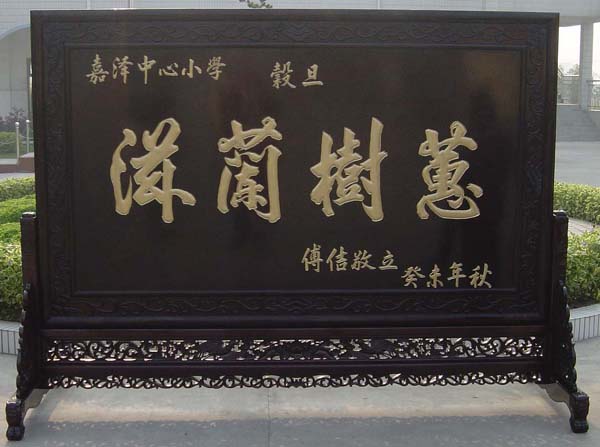 嘉泽中心小学 穀旦
滋蘭樹蕙
傅佶敬立
癸未年秋